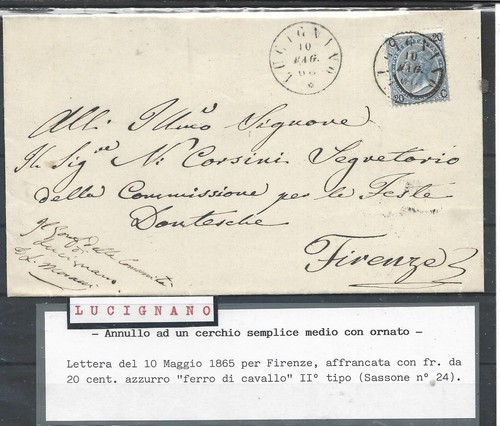 LUCIGNANO
10
MAG.
20 20
LUCIGNANO
10
MAG.
20 C
All' Illmo Signore
Il Sigre N. Corsini Segretario
della Commissione per le Feste
Dantesche
Firenze
Lucignano
LUCIGNANO
– Annullo ad un cerchio semplice medio con ornato –
Lettera del 10 Maggio 1865 per Firenze, affrancata con fr. da
20 cent. azzurro "ferro di cavallo" II° tipo (Sassone n° 24).